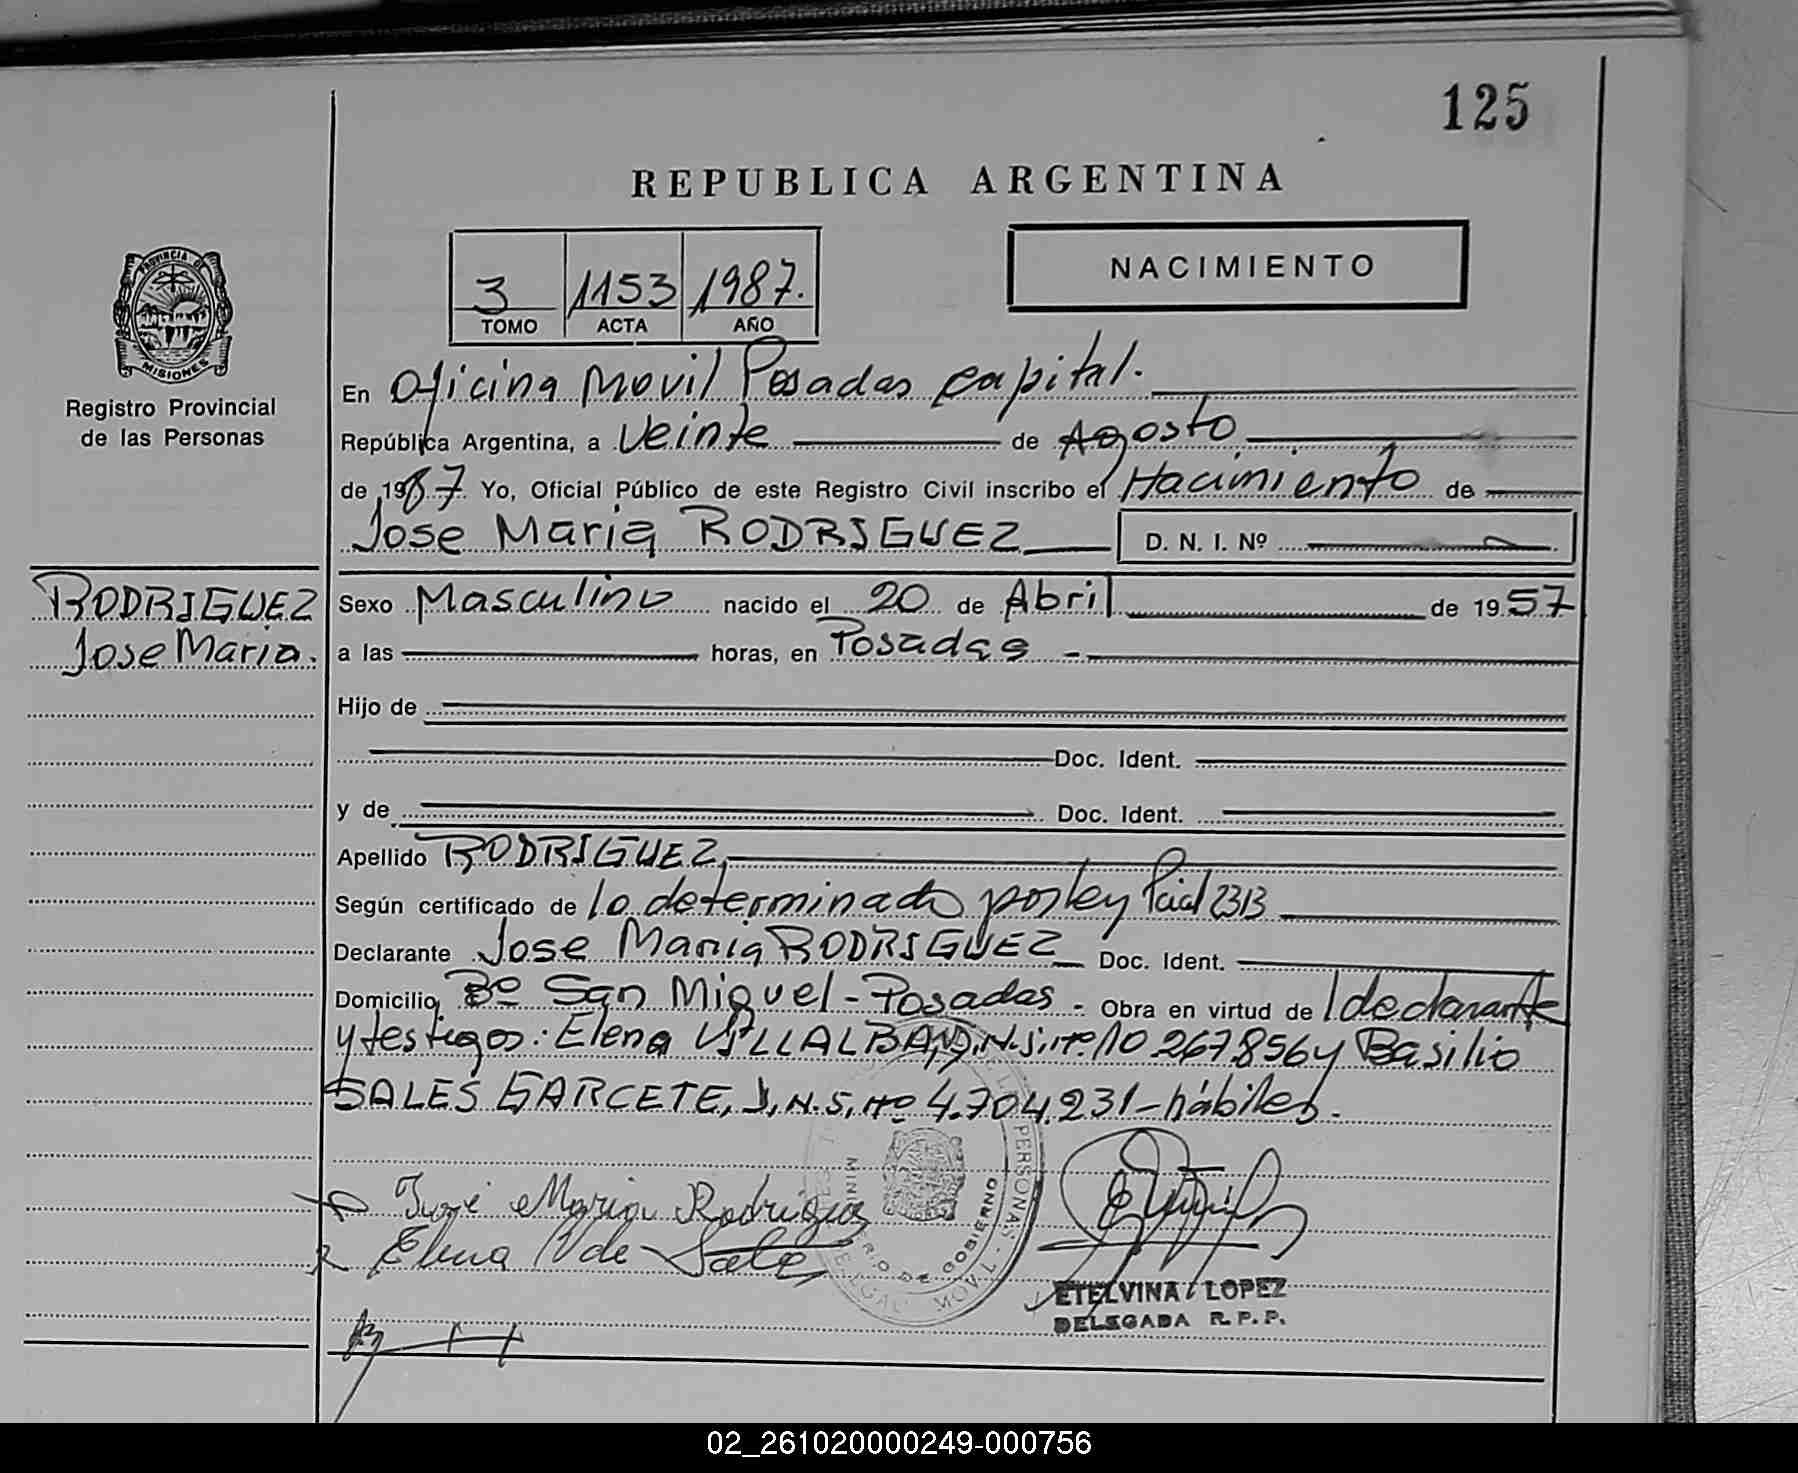 125
REPUBLICA ARGENTINA
3 1153 1987.
TOMO ACTA AÑO
NACIMIENTO
PROVINCIA DE
MISIONES
Registro Provincial
de las Personas
En Oficina Movil Posadas capital.
República Argentina, a Veinte de Agosto
de 1987 Yo, Oficial Público de este Registro Civil inscribo el Nacimiento de
Jose Maria RODRIGUEZ D. N. I. Nº
RODRIGUEZ
Jose Maria.
Sexo Masculino nacido el 20 de Abril de 1957
a las horas, en Posadas -
Hijo de
Doc. Ident.
y de Doc. Ident.
Apellido RODRIGUEZ,
Según certificado de lo determinado por ley Pcial 2313
Declarante Jose Maria RODRIGUEZ Doc. Ident.
Domicilio Bº San Miguel - Posadas - Obra en virtud de l declarante
y testigos: Elena VILLALBA, D.N.I. nº 10 267.856 y Basilio
SALES GARCETE, D.N.I. nº 4.704.231 - hábiles.
José Maria Rodriguez
Elena V de Sale
MINISTERIO DE GOBIERNO
PERSONAS - MOVIL
ETELVINA LOPEZ
DELEGADA R. P. P.
02_261020000249-000756